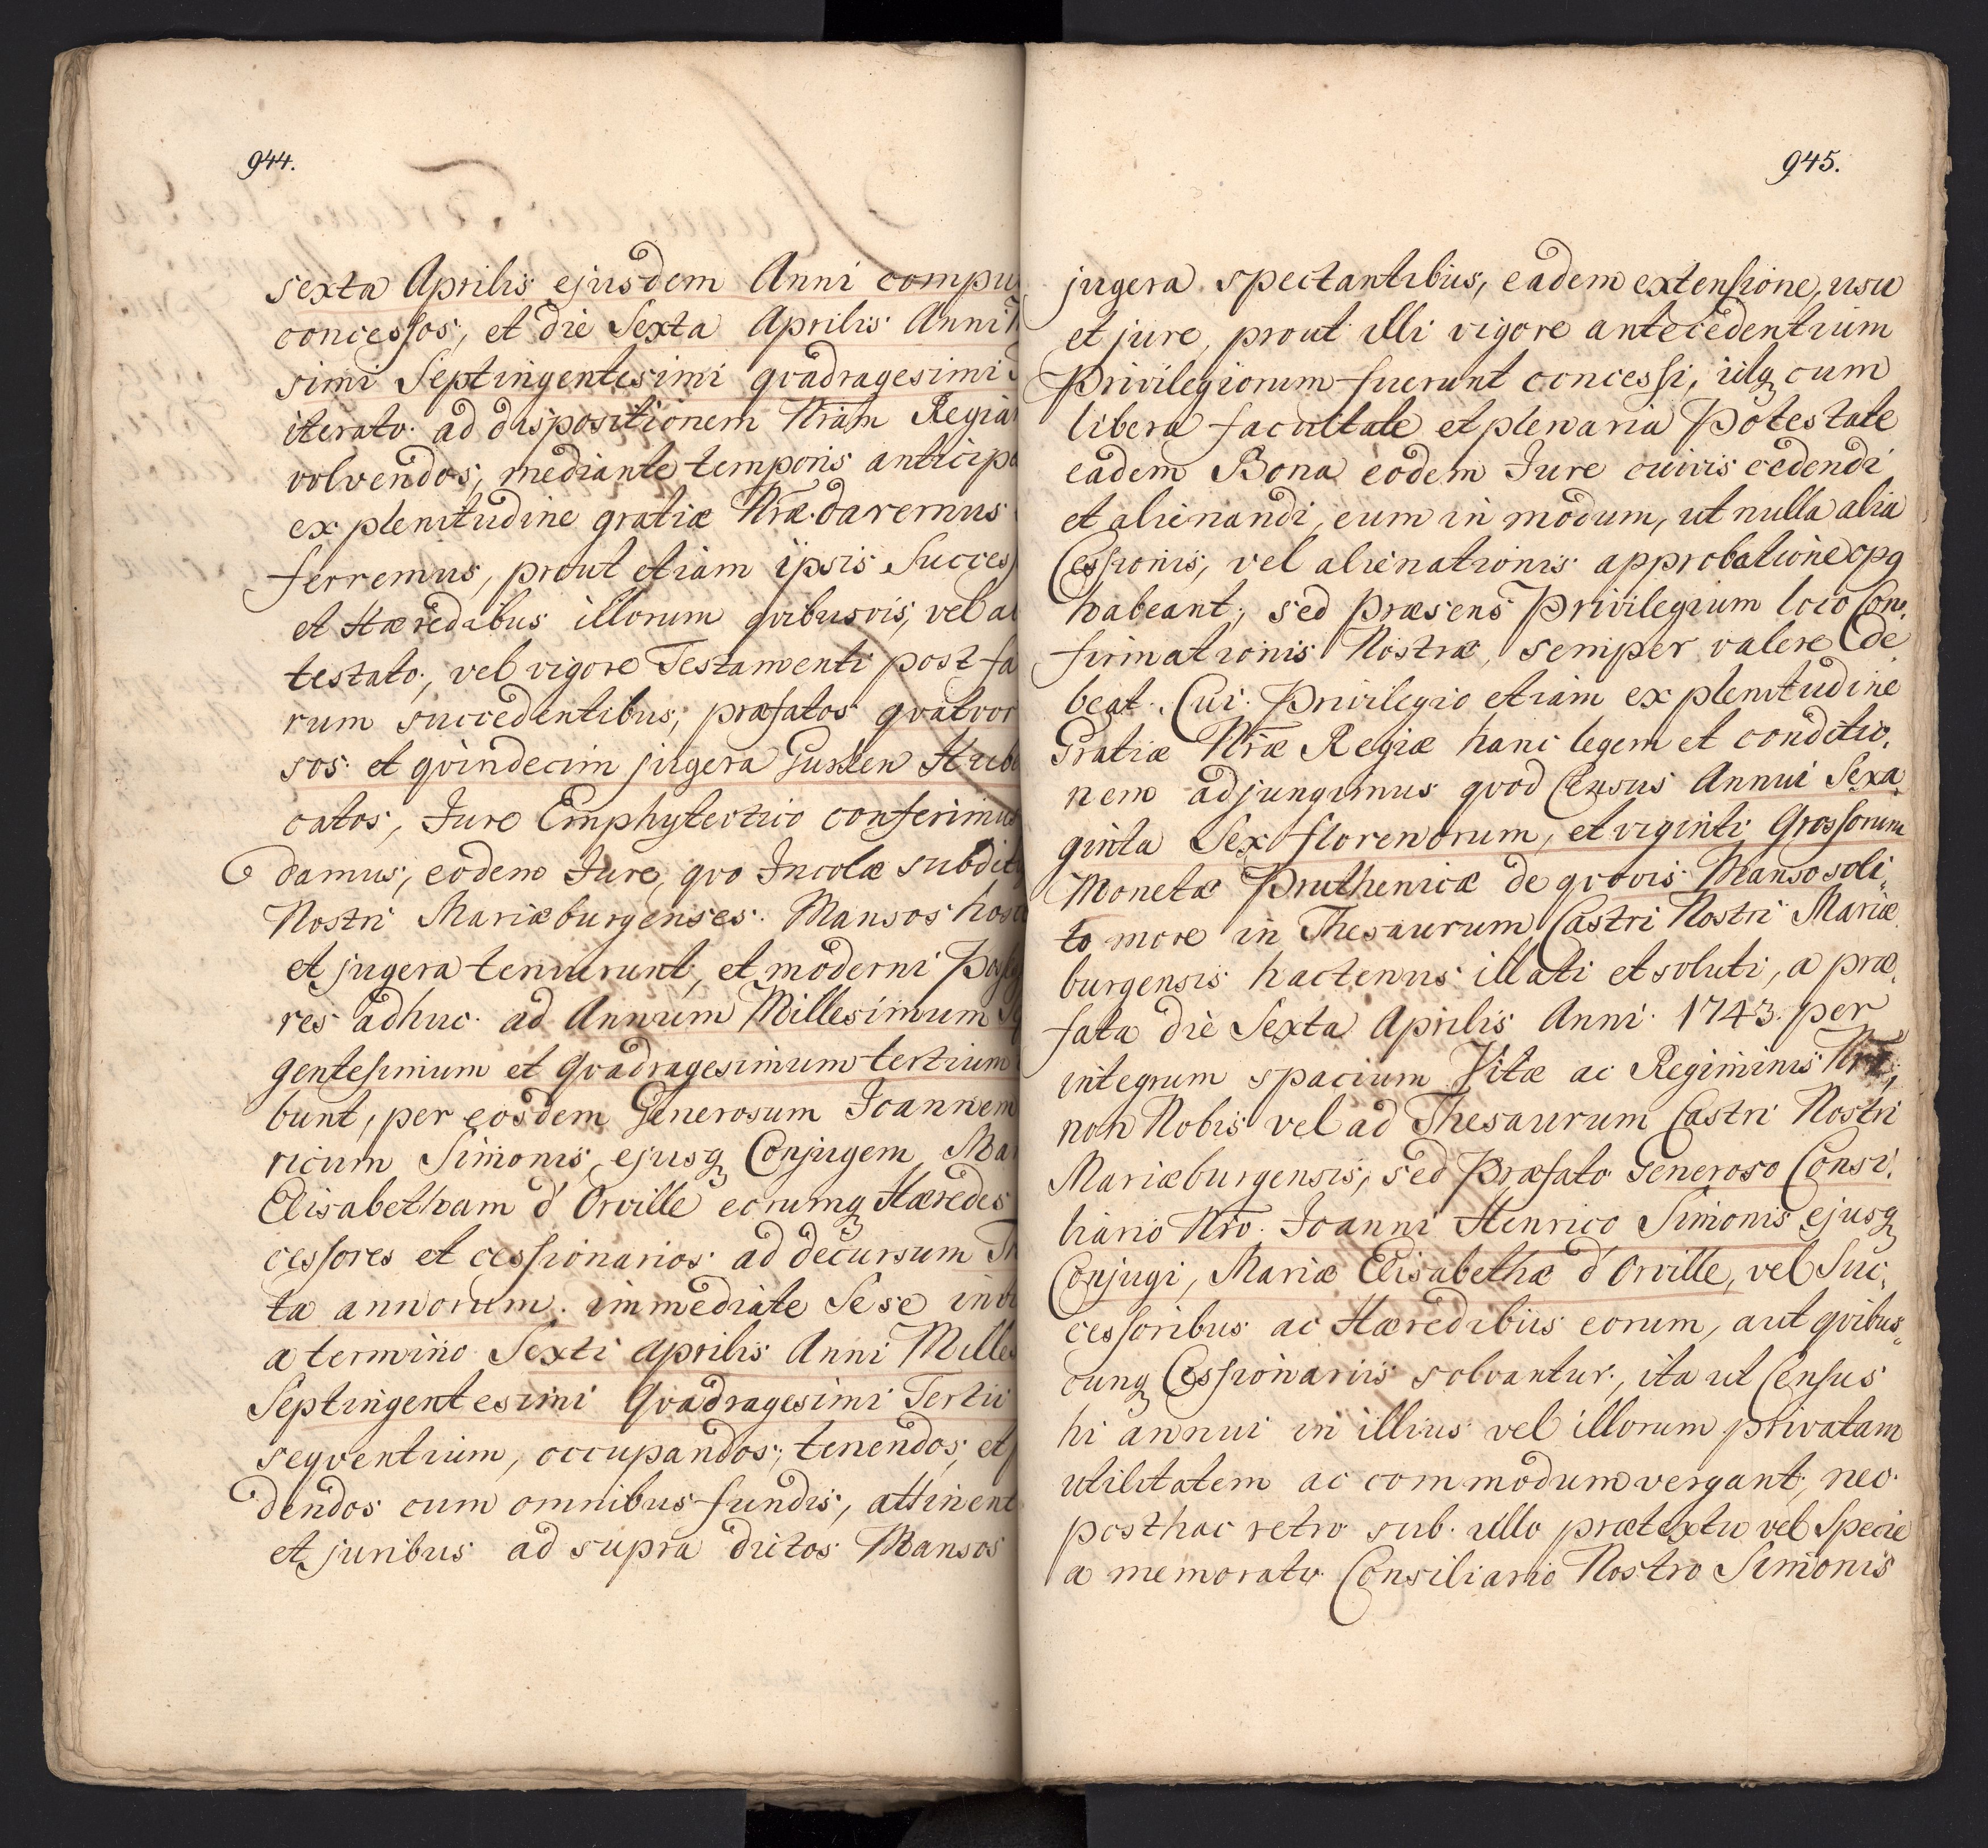 944.
sexta Aprilis ejusdem Anni compu
concessos, et die Sexta Aprilis Anni
simi Septingentesimi qvadragesimi
iterato ad dispositionem Nrãm Regia
volvendos, mediante temporis anticipa
ex plenitudine gratiæ Nræ daremus
ferremus, prout etiam ipsis Succes
et Hæredibus illorum qvibusvis, vel a
testato, vel vigore Testamenti post fa
rum succedentibus, præfatos qvatvor
sos et qvindecim jugera Gurken Hub
catos, Jure Emphyteutico conferimus
damus, eodem Jure, qvo Incolæ subdit
Nostri Mariæburgenses Mansos hosc
et jugera tenuerunt, et moderni Poss
res adhuc ad Annum Millesimum
gentesimum et Qvadragesimum tertium
bunt, per eosdem Generosum Joannem
ricum Simonis, ejusq Conjugem Mar
Elisabetham d'Orville eorumq Hæredes
cessores et cessionarios ad decursum
ta annorum immediate Se se
a termino Sexti Aprilis Anni Mille
Septingentesimi Qvadragesimi Tertii
seqventium, occupandos, tenendos, et
dendos cum omnibus fundis, attinent
et juribus ad supra dictos Mansos
945.
jugera spectantibus, eadem extensione, usu
et jure, prout illi vigore antecedentium
Privilegiorum fuerunt concessi, iisq cum
libera facultate et plenaria Potestate
eadem Bona eodem Jure cuivis cedendi
et alienandi, eum in modum, ut nulla alia
Cessionis, vel alienationis approbatione opq
habeant, sed præsens Privilegium loco Con,
firmationis Nostræ, semper valere de
beat. Cui Privilegio etiam ex plenitudine
Gratiæ Nræ Regiæ hanc legem et conditio,
nem adjungimus qvod Census Annui Sexa,
ginta Sex florenorum, et viginti Grossorum
Monetæ Pruthenicæ de qvovis Manso soli,
to more in Thesaurum Castri Nostri Mariæ
burgensis hactenus illati et soluti, a præ,
fata die Sexta Aprilis Anni 1743. per
integrum spacium Vitæ ac Regiminis Nri,
non Nobis vel ad Thesaurum Castri Nostri
Mariæburgensis, sed Præfato Generoso Consi,
liario Nro Joanni Henrico Simonis ejusq
Conjugi, Mariæ Elisabethæ d'Orville, vel Suc,
cessoribus ac Hæredibus eorum, aut qvibus,
cunq Cessionariis solvantur, ita ut Census
hi annui in illius vel illorum privatam
utilitatem ac commodum vergant, nec
posthac retro sub ullo prætextu vel Specie
a memorato Consiliario Nostro Simonis